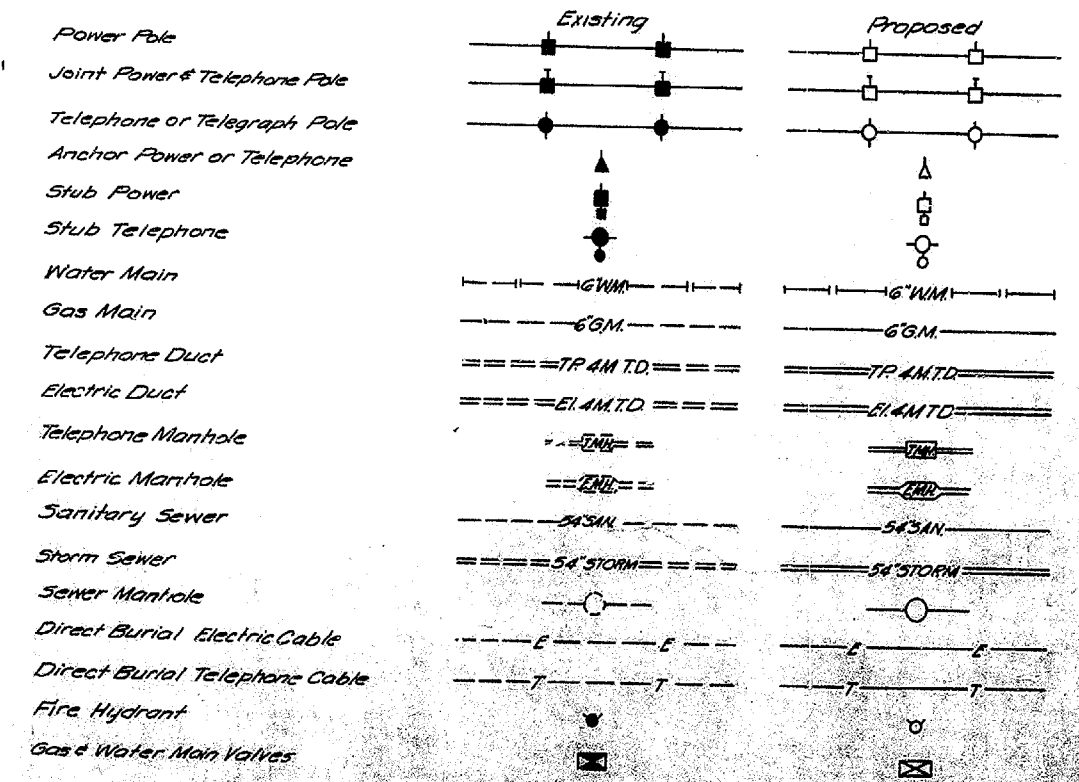 Existing Proposed
Power Pole
Joint Power & Telephone Pole
Telephone or Telegraph Pole
Anchor Power or Telephone
Stub Power
Stub Telephone
Water Main 6"W.M. 6"W.M.
Gas Main 6"G.M. 6"G.M.
Telephone Duct TP. 4M T.D. TP. 4M.T.D.
Electric Duct El. 4M.T.D. El. 4M T.D.
Telephone Manhole T.M.H. T.M.H.
Electric Manhole E.M.H. E.M.H.
Sanitary Sewer 54"SAN. 54"SAN.
Storm Sewer 54"STORM 54"STORM
Sewer Manhole
Direct Burial Electric Cable E E E E
Direct Burial Telephone Cable T T T T
Fire Hydrant
Gas & Water Main Valves